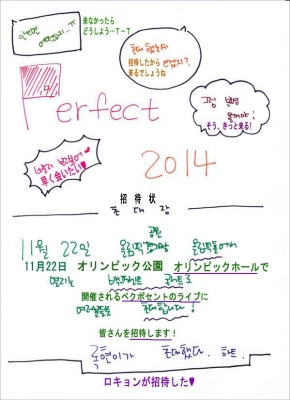 안오면
어떡하지..ㅠ
来なかったら
どうしよう…T-T
초대했는데
招待したから
来るでしょうね
Perfect
그럼
そう、きっと来る!
早く会いたい♥
2014
招待状
초대장
11월 22일 올림픽공원 올림픽홀에서
11月22日 オリンピック公園 オリンピックホールで
열리는 백퍼센트 콘서트로
開催されるペクポセントのライブに
여러분들을 초대합니다!
皆さんを招待します!
록현이가 초대했다. 하트.
ロキョンが招待した♥